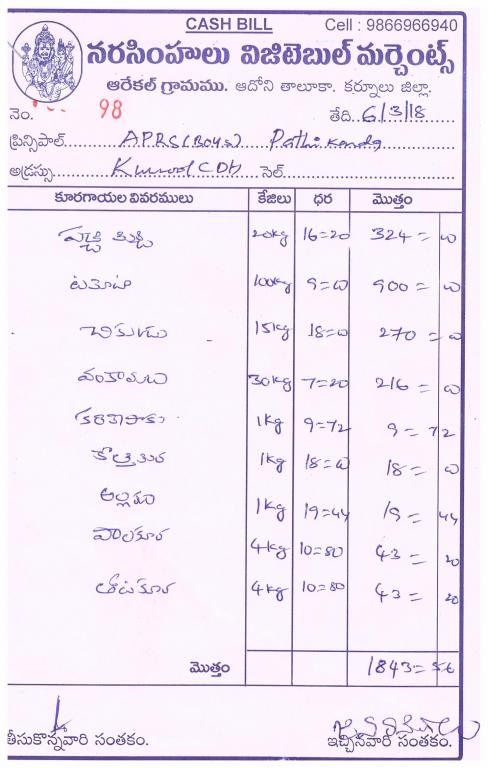 CASH BILL Cell : 9866966940
నరసింహులు విజిటెబుల్ మర్చెంట్స్
ఆరేకల్ గ్రామము. ఆదోని తాలూకా. కర్నూలు జిల్లా.
నెం. 98 తేది. 6/3/18
ప్రిన్సిపాల్ APRS(Boys) Pathikonda
అడ్రస్సు Kurnool (Dt) సెల్
కూరగాయల వివరములు కేజిలు ధర మొత్తం
పచ్చి మిర్చి 20kg 16=20 324=00
టమోటా 100kg 9=00 900=00
చికుడు 15kg 18=00 270=00
వంకాయలు 30kg 7=20 216=00
కరివేపాకు 1kg 9=72 9=72
కొత్తిమీర 1kg 18=00 18=00
అల్లము 1kg 19=44 19=44
పాలకూర 4kg 10=80 43=20
తోటకూర 4kg 10=80 43=20
మొత్తం 1843=56
తీసుకొన్నవారి సంతకం. ఇచ్చినవారి సంతకం.